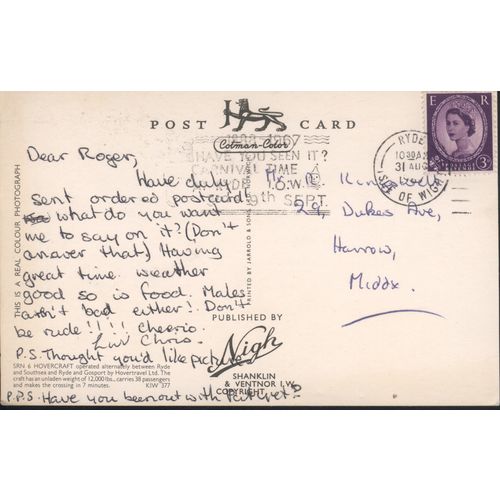 POST CARD
Colman-Color
1888 1967
HAVE YOU SEEN IT?
CARNIVAL TIME
RYDE I.O.W.
9th SEPT.
E R
3D
RYDE
10 30 AM
31 AUG
ISLE OF WIGHT
Dear Roger,
Have duly
sent ordered postcard
what do you want
me to say on it? (Don't
answer that) Having
great time. weather
good so is food. Males
arn't bad either!. Don't
be rude!!!! Cheerio.
Luv Chris.
P.S. Thought you'd like picture
P.P.S. Have you been out with Pat yet?
29, Dukes Ave,
Harrow,
Middx.
THIS IS A REAL COLOUR PHOTOGRAPH
PRINTED BY JARROLD & SONS
PUBLISHED BY
Nigh
SHANKLIN
& VENTNOR I.W.
COPYRIGHT
SRN 6 HOVERCRAFT operated alternately between Ryde
and Southsea and Ryde and Gosport by Hovertravel Ltd. The
craft has an unladen weight of 12,000 lbs., carries 38 passengers
and makes the crossing in 7 minutes. KIW 377